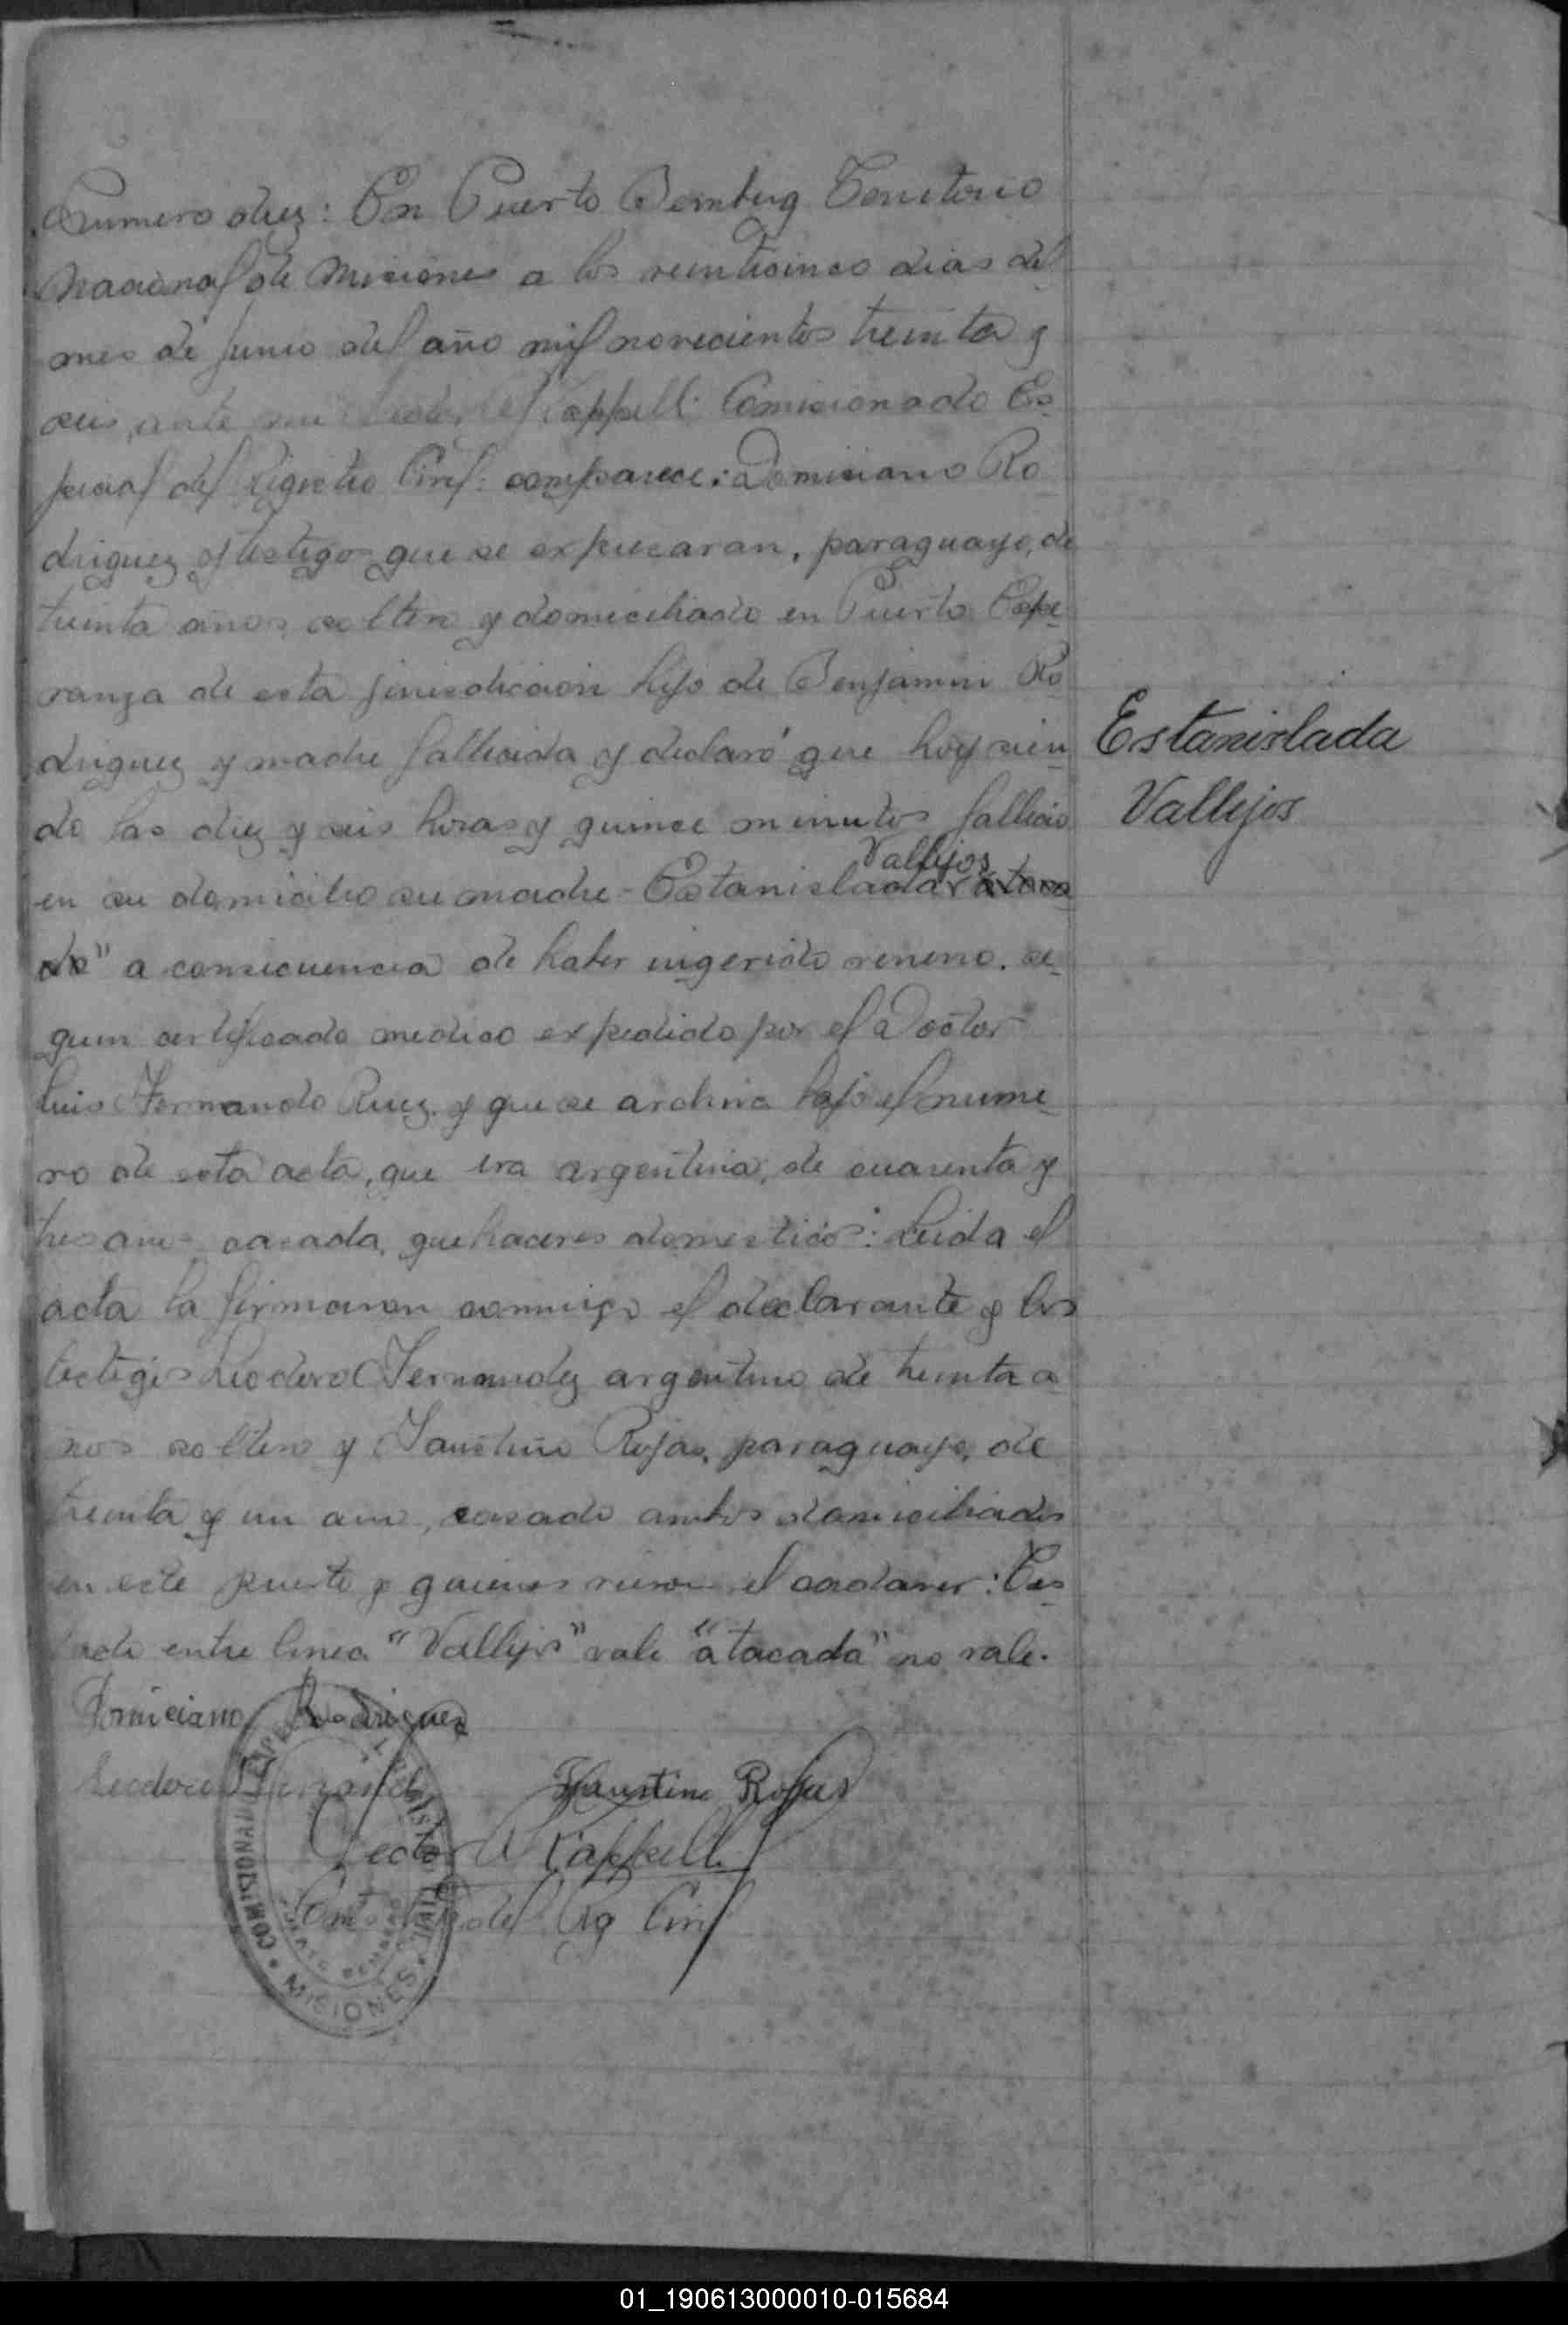 Numero diez: En Puerto Bemberg Territorio
Nacional de Misiones a los veinticinco dias del
mes de Junio del año mil novecientos treinta y
seis, ante mi Hector A Cappelli Comisionado Es-
pecial del Registro Civil: comparece: Domiciano Ro
driguez y testigos que se expresaran, paraguayo, de
treinta años, soltero y domiciliado en Puerto Espe-
ranza de esta jurisdiccion hijo de Benjamin Ro
driguez y madre fallecida y declaró que hoy sien-
do las diez y seis horas y quince minutos fallecio
Vallejos
en su domicilio su madre - Estanislada ataca
da" a consecuencia de haber ingerido veneno. se-
gun certificado medico expedido por el Doctor
Luis Fernando Ruez. y que se archiva bajo el nume-
ro de esta acta, que era argentina, de cuarenta y
tres años casada, quehaceres domesticos: Leida el
acta la firmaron conmigo el declarante y los
testigos Leodoro Fernandez argentino de treinta a
ños soltero y Faustino Rojas, paraguayo, de
treinta y un año, casado ambos domiciliados
en este puerto y quienes vieron el cadaver:
entre linea "Vallejos" vale "atacada" no vale.
Estanislada
Vallejos
Domiciano Rodriguez
Leodoro Fernandez
Faustino Rojas
Hector A Cappelli
del Reg Civil
MISIONES
01_190613000010-015684